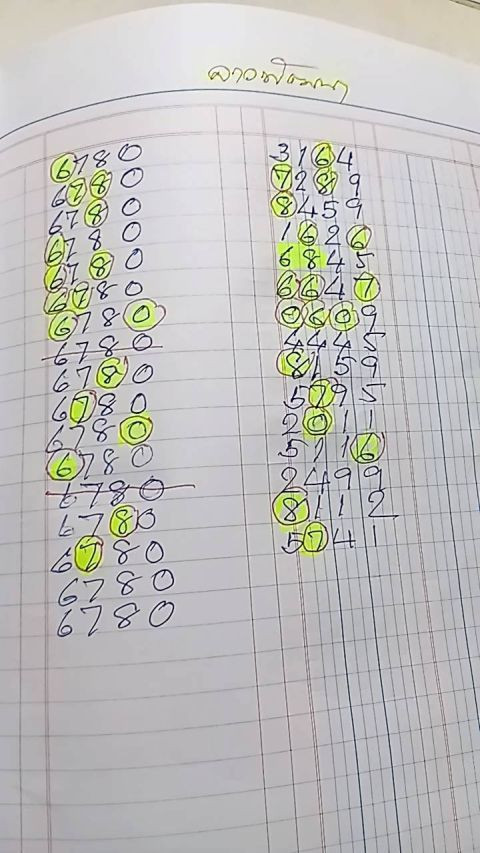 ลาวพัฒนา
6780 3164
6780 7289
6780 8459
6780 1626
6780 6845
6780 6647
6780 0609
6780 4445
6780 8159
6780 5795
6780 2011
6780 5116
6780 2499
6780 8112
6780 5741
6780
6780